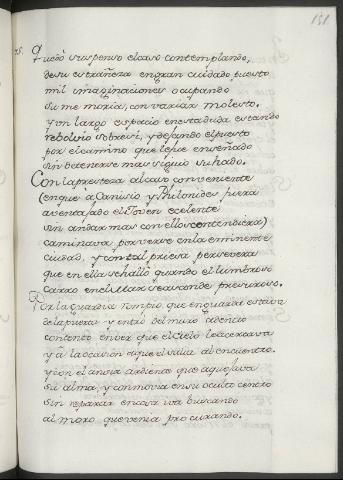 151
75. Quedò suspenso el caso contemplando,
de su estrañeza en gran cuidado puesto
mil imaginaciones ocupando
su memoria, con variar molesto.
y un largo espacio en esta duda estando
rebolvió sobre si, y dejando el puesto
por el camino que le fue enseñado
sin detenerse mas siguio su hado.
Con la presteza al caso conveniente
(en que a Canisio y Philonides fuera
aventajado el Joven excelente
sin andar mas con ellos contendiera)
caminava por verse en la eminente
Ciudad, y con tal priesa persevera
que en ella se halló quando el lumbroso
carro en el Mar
Por la guardia rompio, que en guarda estava
de la puerta y entrò del muro adentro
contento en ver que el Cielo le acercava
y â la ocasion que el salia al encuentro.
y con el ansia ardiente que aquejava
su alma, y conmovia en su oculto centro
sin reparar en cosa iva buscando
al moro que venia procurando.